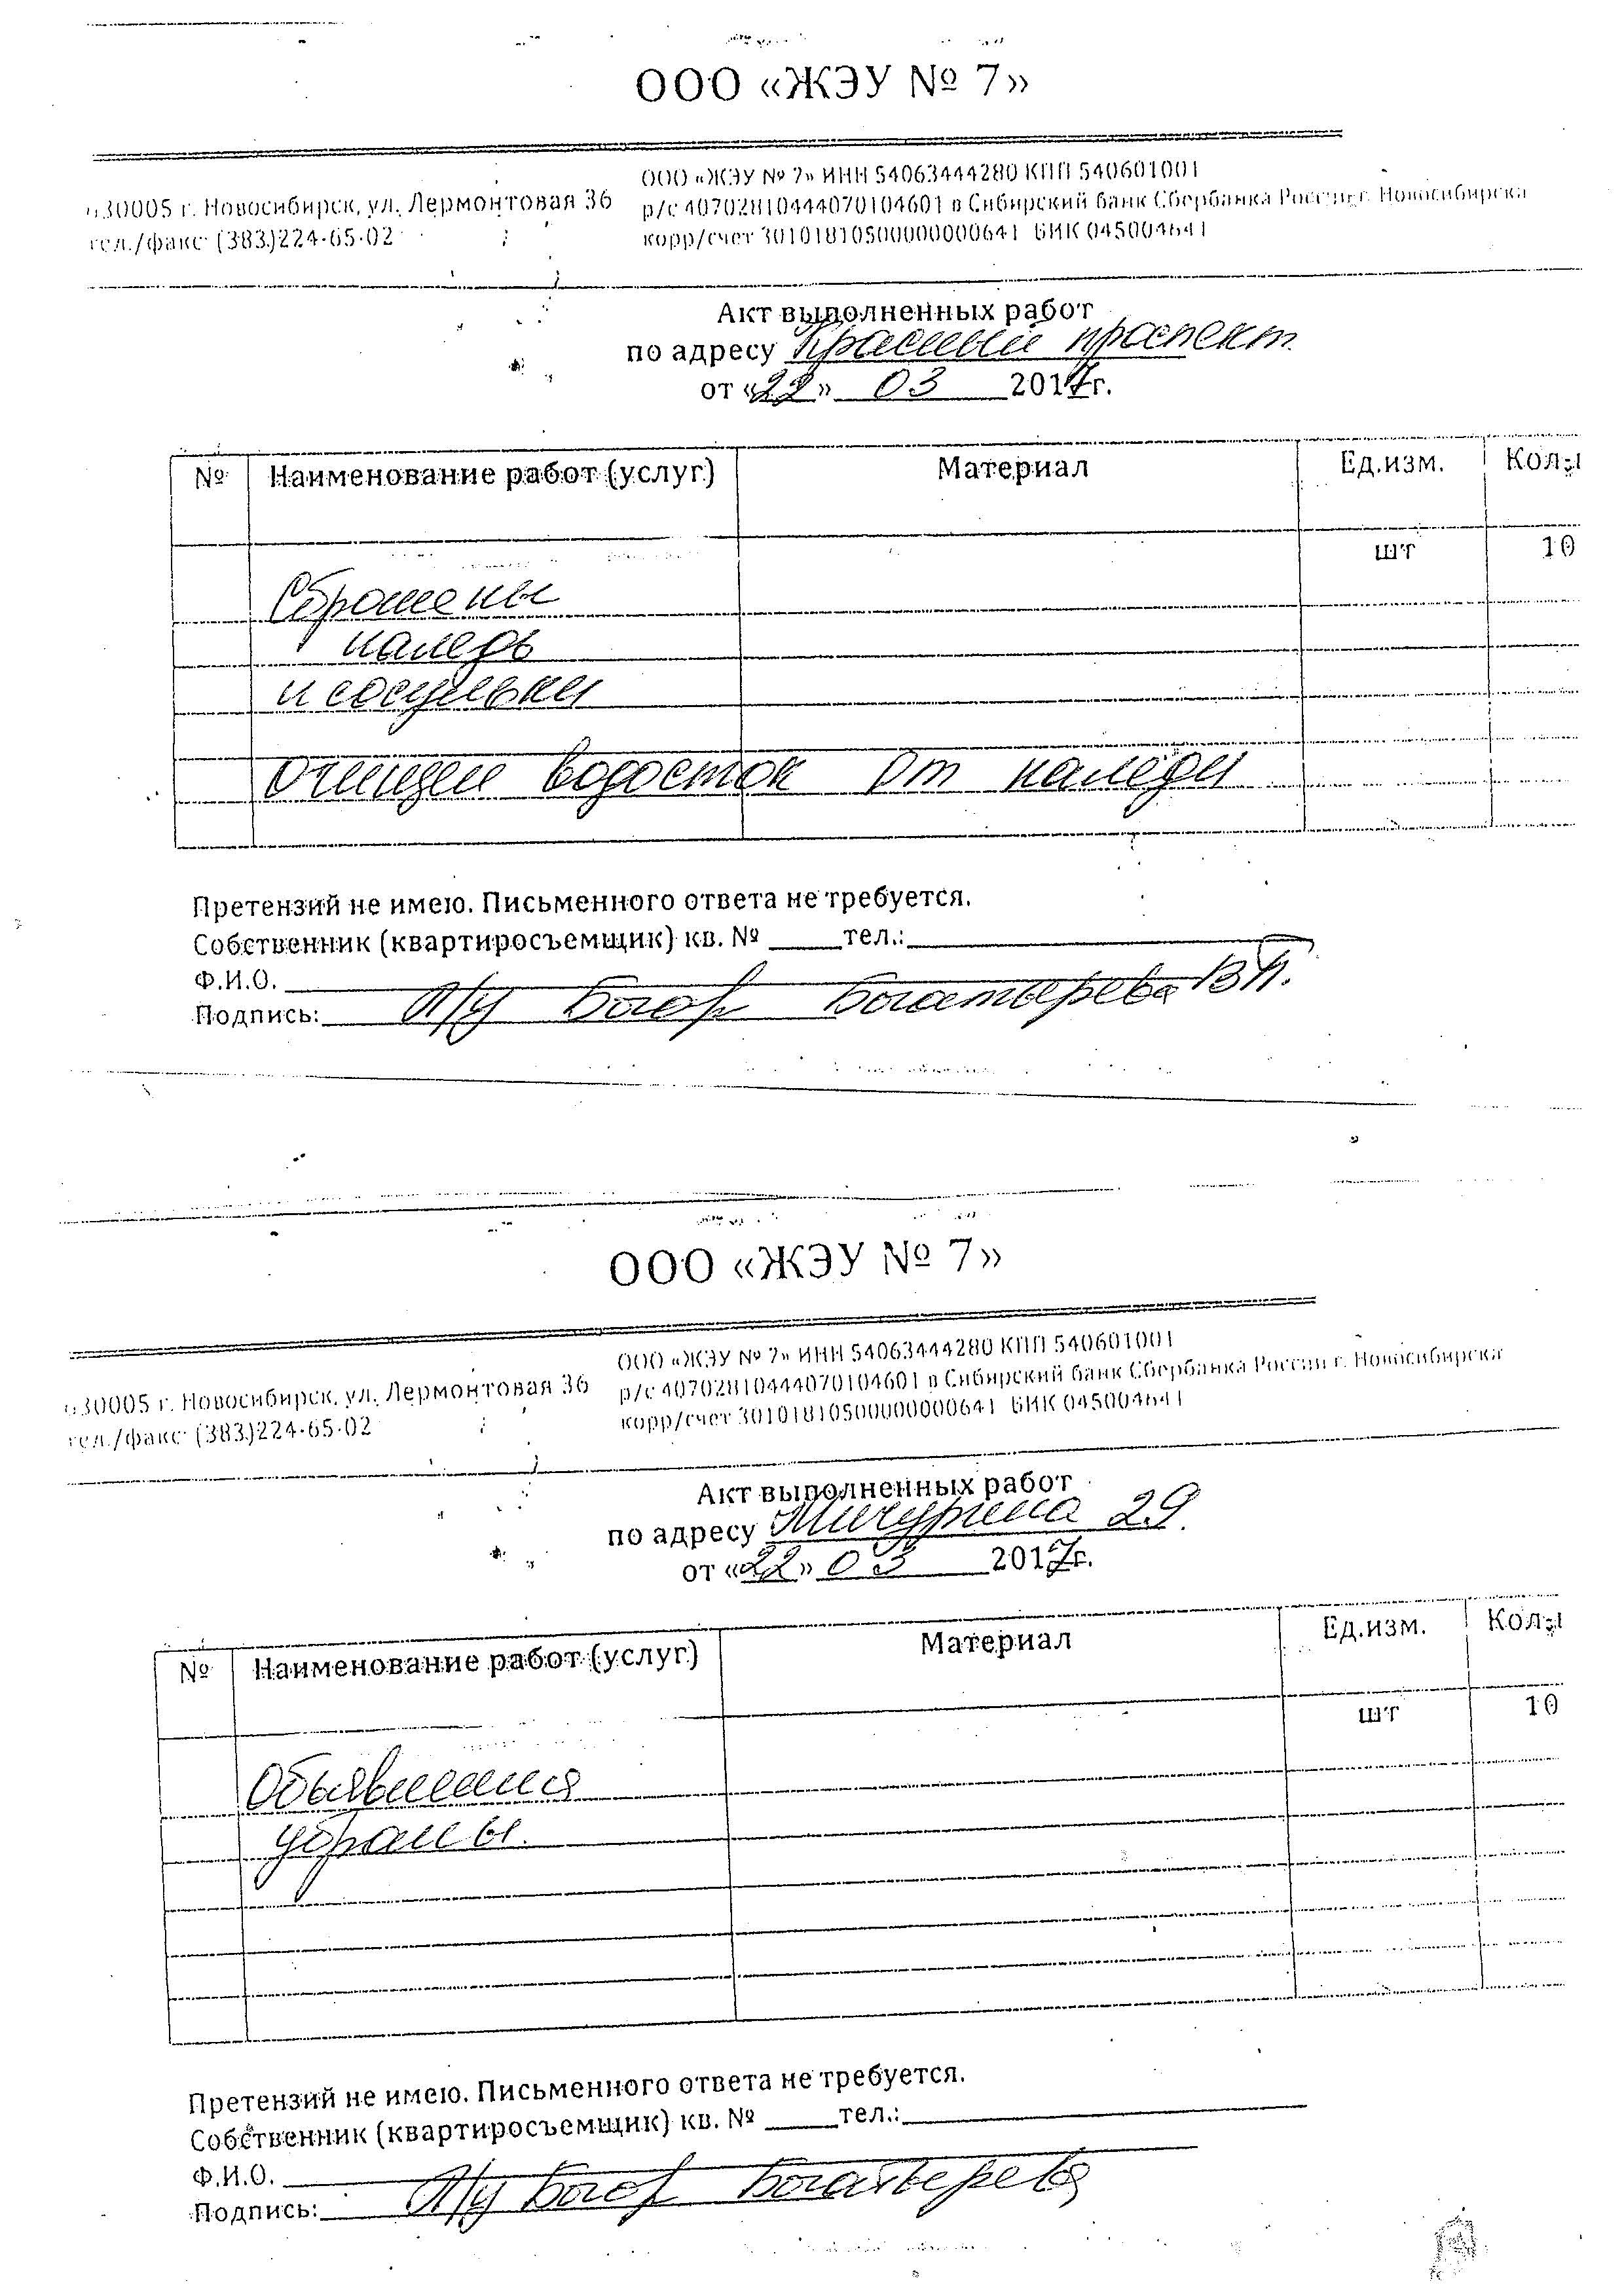 ООО «ЖЭУ № 7»
630005 г. Новосибирск, ул. Лермонтовая 36
тел./факс (383)224-65-02
ООО «ЖЭУ № 7» ИНН 54063444280 КПП 540601001
р/с 40702810444070104601 в Сибирский банк Сбербанка России г. Новосибирска
корр/счет 30101810500000000641 БИК 045004641
Акт выполненных работ
по адресу Красный проспект
от «22» 03 2017г.
№ Наименование работ (услуг) Материал Ед.изм. Кол-
шт 10
Сброшены
наледь
и сосульки
очищен водосток от наледи
Претензий не имею. Письменного ответа не требуется.
Собственник (квартиросъемщик) кв. № тел.:
Ф.И.О.
Подпись: Богатырева В.П.
ООО «ЖЭУ № 7»
630005 г. Новосибирск, ул. Лермонтовая 36
тел./факс (383)224-65-02
ООО «ЖЭУ № 7» ИНН 54063444280 КПП 540601001
р/с 40702810444070104601 в Сибирский банк Сбербанка России г. Новосибирска
корр/счет 30101810500000000641 БИК 045004641
Акт выполненных работ
по адресу Мичурина 29
от «22» 03 2017г.
№ Наименование работ (услуг) Материал Ед.изм. Кол-
шт 10
Объявления
убраны.
Претензий не имею. Письменного ответа не требуется.
Собственник (квартиросъемщик) кв. № тел.:
Ф.И.О.
Подпись: Богатырева